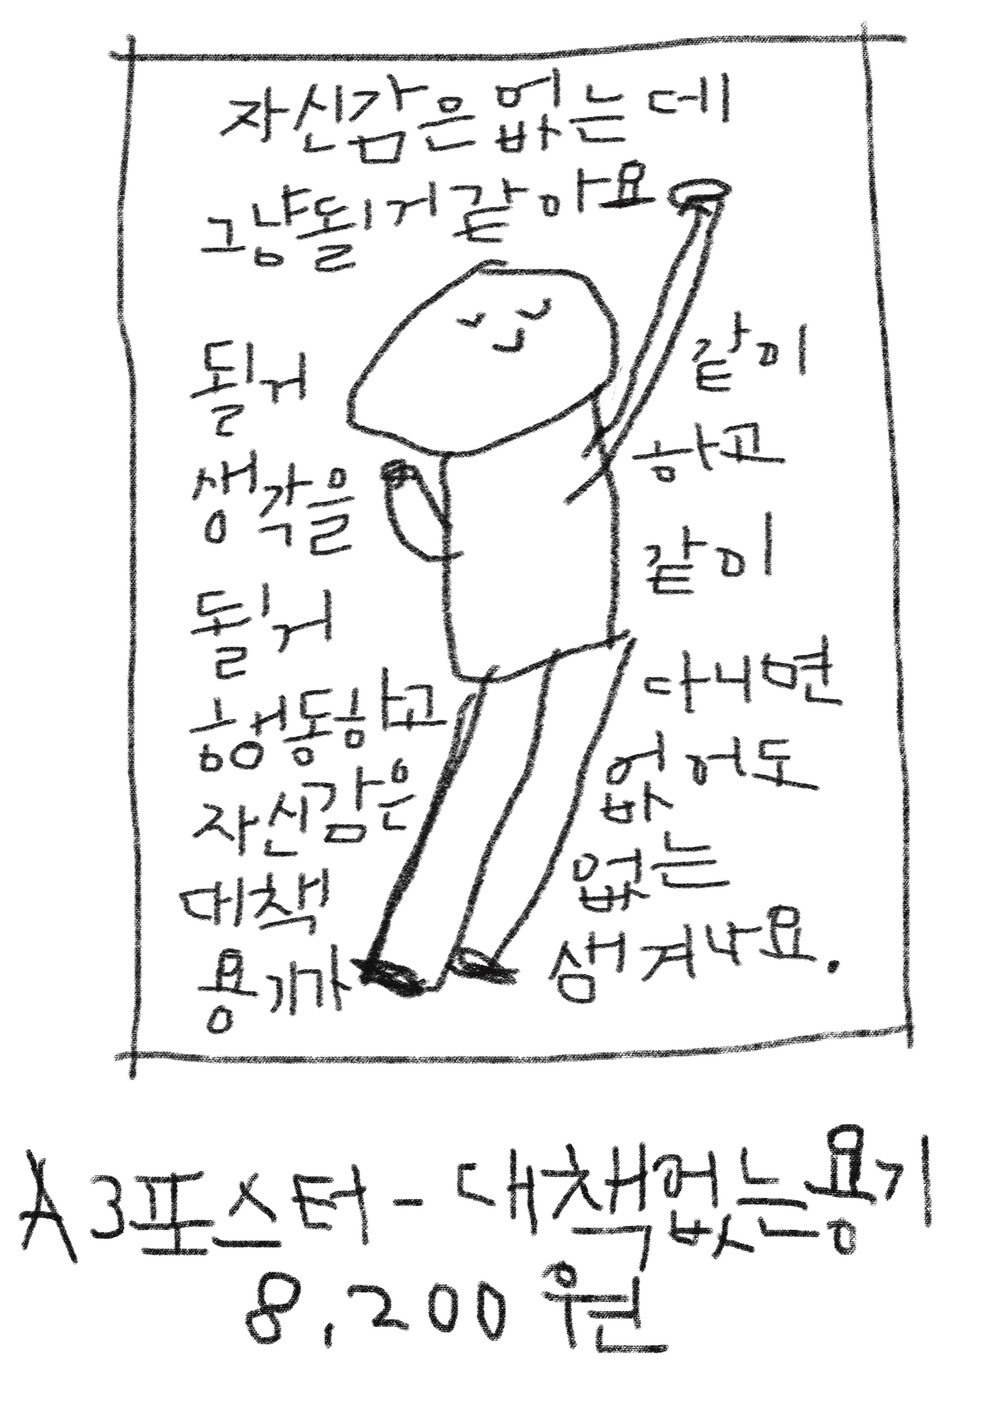 자신감은 없는데
그냥 될 거 같아요
될 거
생각을
될 거
행동하고
자신감은
대책
용기가
같이
하고
같이
다니면
없어도
없는
생겨나요.
A3포스터 - 대책없는용기
8,200원